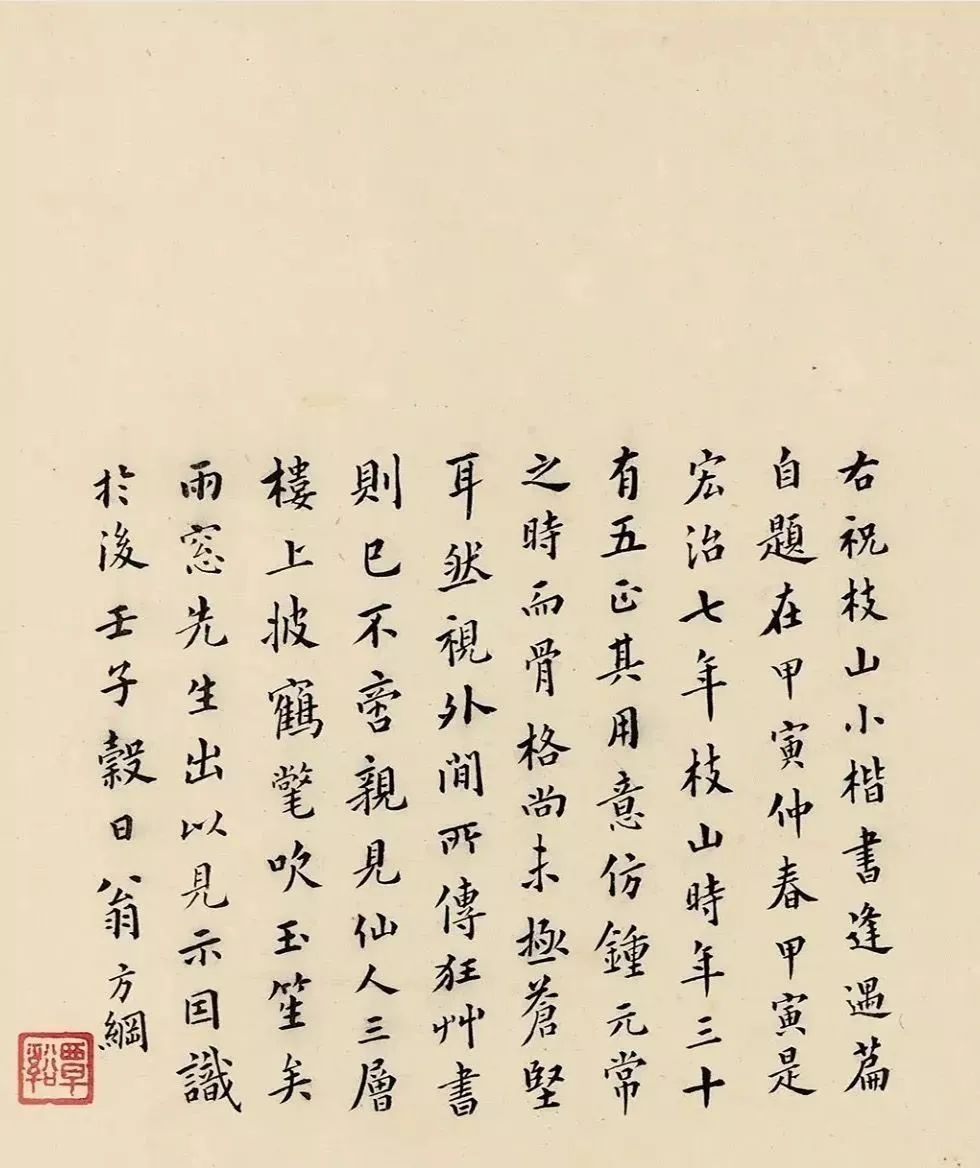 右祝枝山小楷書逢遇篇
自題在甲寅仲春甲寅是
宏治七年枝山時年三十
有五正其用意仿鍾元常
之時而骨格尚未極蒼堅
耳然視外間所傳狂艸書
則已不啻親見仙人三層
樓上披鶴氅吹玉笙矣
雨窓先生出以見示因識
於後壬子穀日翁方綱
覃谿